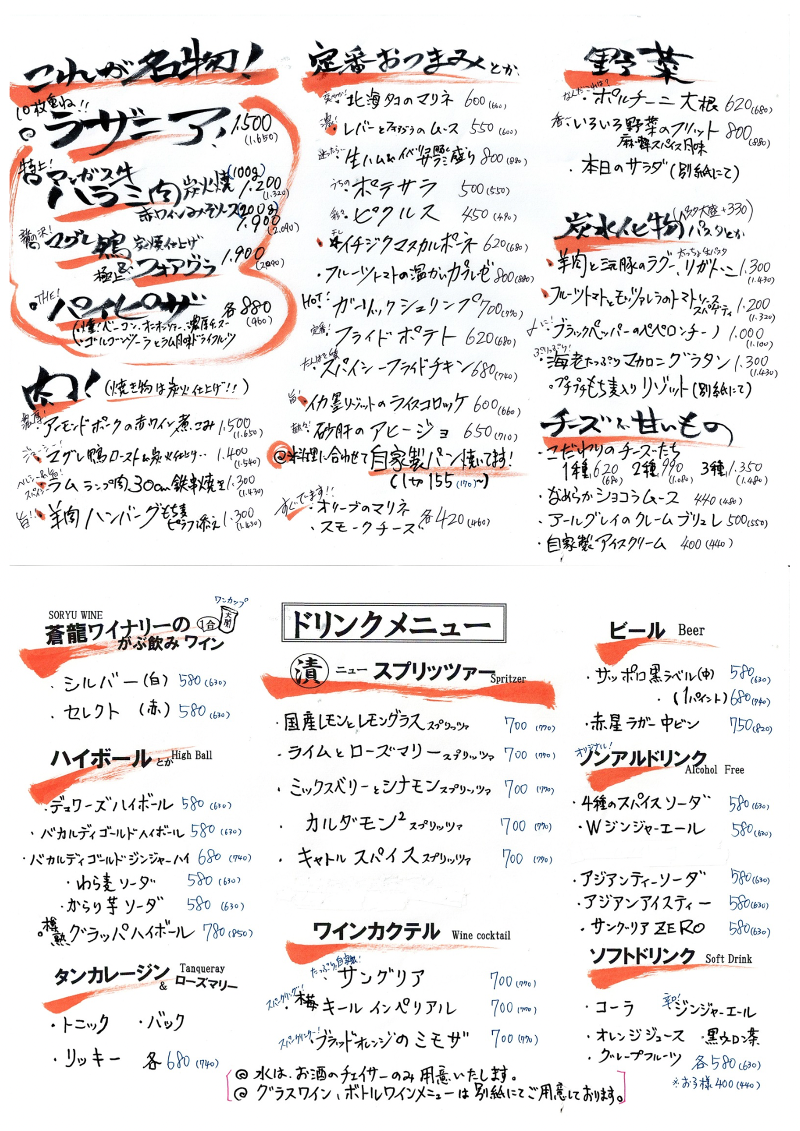 これが名物!
10枚重ね!!
ラザニア 1.500
(1.650)
特上!
アンガス牛
ハラミ肉 炭火焼 (100g) 1.200
(1.320)
赤ワインみそソース (200g) 1.900
(2.090)
マグレ鴨 炭焼仕上げ
極上 フォアグラ 1.900
(2.090)
THE!
パイピザ 各880
(960)
・ゴルゴンゾーラとラム風味ドライフルーツ
肉! (焼き物は炭火仕上げ!!)
濃厚!
・アーモンドポークの赤ワイン煮こみ 1.500
(1.650)
・マグレ鴨ロースト&炭火仕上げ… 1.400
(1.540)
・ラム ランプ肉 300g 鉄串焼き 1.300
(1.430)
旨!
・羊肉ハンバーグ もち麦ピラフ添え 1.300
(1.430)
定番おつまみとか
・北海タコのマリネ 600(660)
・レバーとフォアグラのムース 550(600)
・生ハム&イベリコ豚サラミ盛り 800(880)
うちの
ポテサラ 500(550)
・ピクルス 450(490)
・干イチジクマスカルポーネ 620(680)
・フルーツトマトの温かいカプレーゼ 800(880)
HOT!
・ガーリックシュリンプ 700(770)
定番!
・フライドポテト 620(680)
・スパイシーフライドチキン 680(740)
旨!
・イカ墨リゾットのライスコロッケ 600(660)
・砂肝のアヒージョ 650(710)
◎お料理に合わせて自家製パン焼いてます!
(1ヶ 155 (170))
すぐでます!!
・オリーブのマリネ
・スモークチーズ 各420(460)
野菜
・ポルチーニ大根 620(680)
・いろいろ野菜のフリット 800
麻辣スパイス風味 (880)
・本日のサラダ(別紙にて)
炭水化物 (パスタ大盛+330)
パスタとか
・羊肉と三元豚のラグー リガトーニ 1.300
(1.430)
・フルーツトマトとモッツァレラのトマトソース
スパゲティ 1.200
(1.320)
・ブラックペッパーのペペロンチーノ 1.000
(1.100)
ぷりっぷり!
・海老たっぷりマカロニグラタン 1.300
(1.430)
・プチプチもち麦入りリゾット(別紙にて)
チーズと甘いもの
・こだわりのチーズたち
1種 620 2種 990 3種 1.350
(680) (1.080) (1.480)
・なめらかショコラムース 440(480)
・アールグレイのクレームブリュレ 500(550)
・自家製アイスクリーム 400(440)
ドリンクメニュー
SORYU WINE
蒼龍ワイナリーの
がぶ飲みワイン
1合
ワンカップ
大関
・シルバー(白) 580(630)
・セレクト(赤) 580(630)
ハイボールとか High Ball
・デュワーズハイボール 580(630)
・バカルディゴールドハイボール 580(630)
・バカルディゴールドジンジャーハイ 680(740)
・わら麦ソーダ 580(630)
・からり芋ソーダ 580(630)
樽熟
グラッパハイボール 780(850)
タンカレージン Tanqueray
&ローズマリー
・トニック ・バック
・リッキー 各680(740)
漬 ニュー スプリッツァー Spritzer
・国産レモンとレモングラススプリッツァ 700(770)
・ライムとローズマリースプリッツァ 700(770)
・ミックスベリーとシナモンスプリッツァ 700(770)
・カルダモン²スプリッツァ 700(770)
・キャトルスパイススプリッツァ 700(770)
ワインカクテル Wine cocktail
・サングリア 700(770)
スパークリング!
・梅キールインペリアル 700(770)
スパークリング!
・ブラッドオレンジのミモザ 700(770)
ビール Beer
・サッポロ黒ラベル(中) 580(630)
・(1パイント) 680(740)
・赤星ラガー中ビン 750(820)
オリジナル!
ノンアルドリンク
Alcohol Free
・4種のスパイスソーダ 580(630)
・Wジンジャーエール 580(630)
・アジアンティーソーダ 580(630)
・アジアンアイスティー 580(630)
・サングリアZERO 580(630)
ソフトドリンク Soft Drink
・コーラ 辛口!ジンジャーエール
・オレンジジュース ・黒ウーロン茶
・グレープフルーツ 各580(630)
※お子様400(440)
◎水は、お酒のチェイサーのみ用意いたします。
◎グラスワイン、ボトルワインメニューは別紙にてご用意しております。